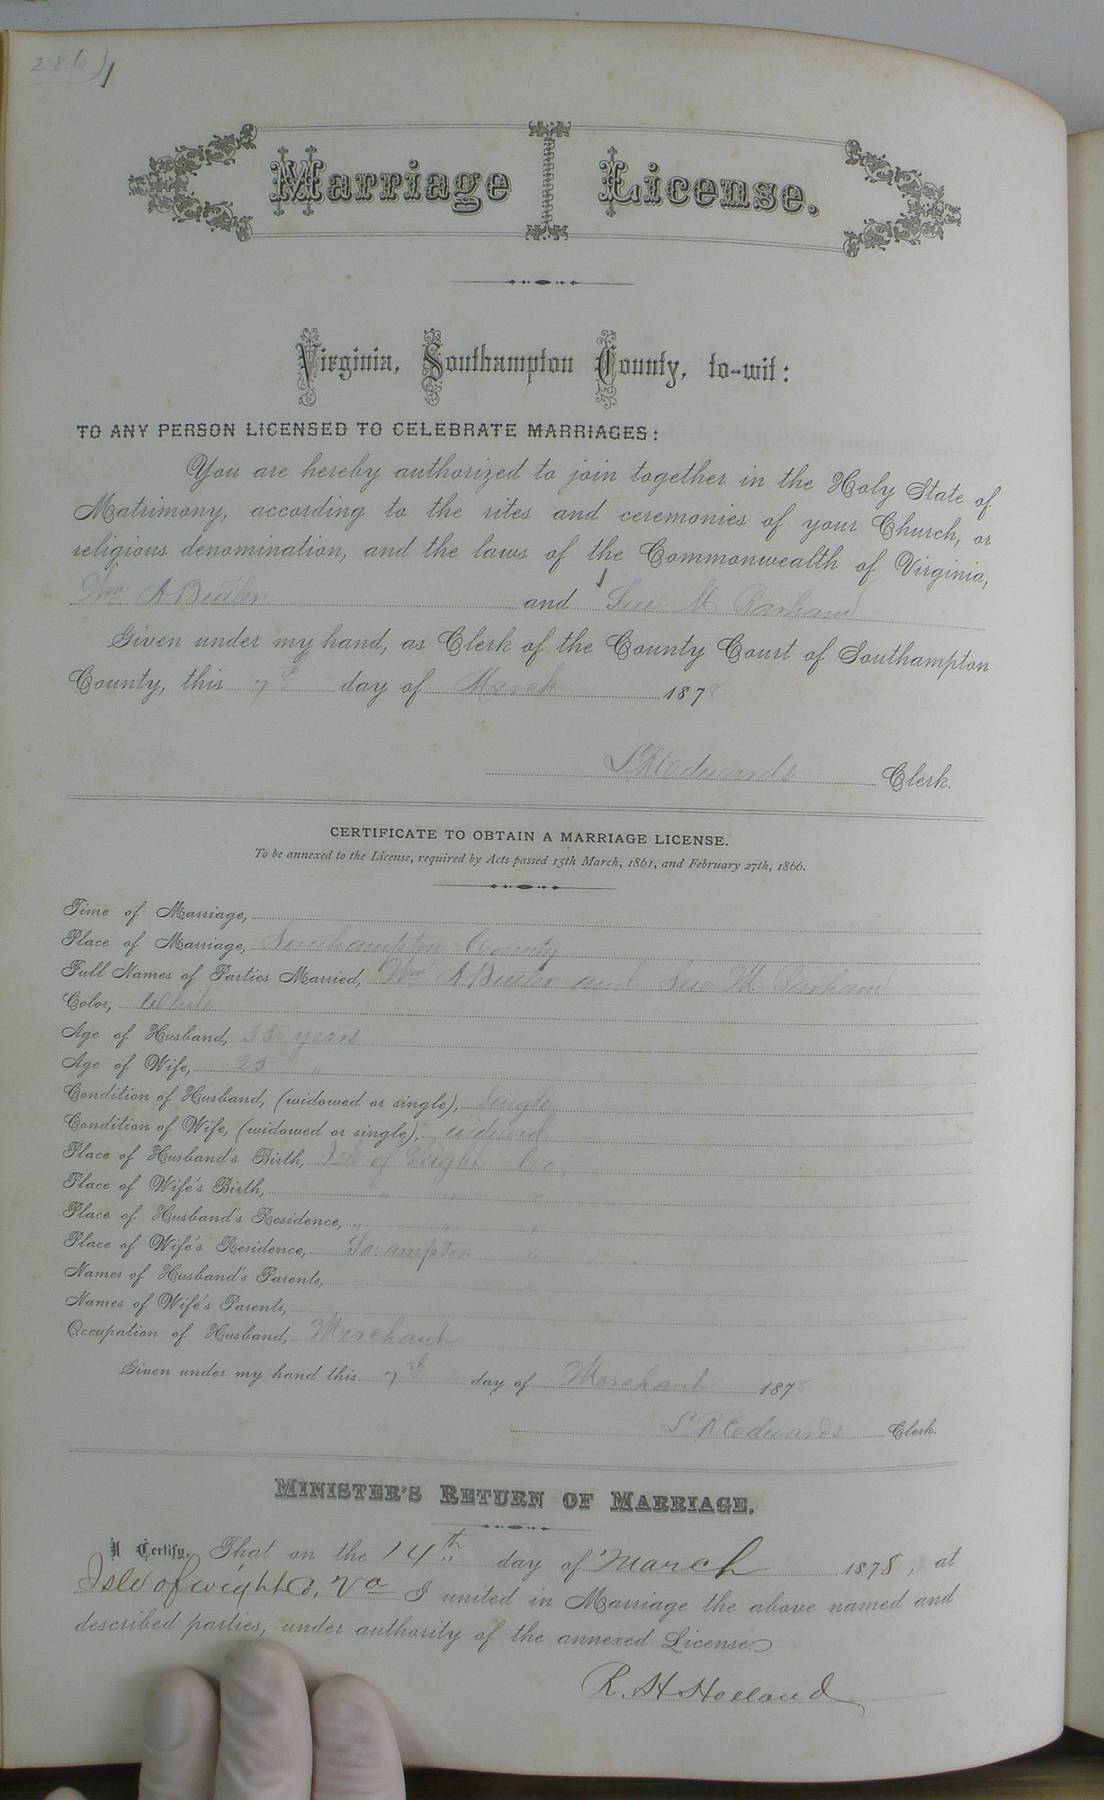 286
Marriage License.
Virginia, Southampton County, to-wit:
TO ANY PERSON LICENSED TO CELEBRATE MARRIAGES:
You are hereby authorized to join together in the Holy State of
Matrimony, according to the rites and ceremonies of your Church, or
religious denomination, and the laws of the Commonwealth of Virginia,
Wm A Butler and Sue M Parham
Given under my hand, as Clerk of the County Court of Southampton
County, this 7th day of March 1878
L R Edwards Clerk.
CERTIFICATE TO OBTAIN A MARRIAGE LICENSE.
To be annexed to the License, required by Acts passed 15th March, 1861, and February 27th, 1866.
Time of Marriage,
Place of Marriage, Southampton County
Full Names of Parties Married, Wm A Butler and Sue M Parham
Color, White
Age of Husband, 35 years
Age of Wife, 25 "
Condition of Husband, (widowed or single), Single
Condition of Wife, (widowed or single), widowed
Place of Husband's Birth, Isle of Wight Co,
Place of Wife's Birth, " " " "
Place of Husband's Residence, " " "
Place of Wife's Residence, So:ampton "
Names of Husband's Parents,
Names of Wife's Parents,
Occupation of Husband, Merchant
Given under my hand this 7th day of Merchant 1878
L R Edwards Clerk.
MINISTER'S RETURN OF MARRIAGE.
I Certify, That on the 14th day of March 1878, at
Isle of wight Co, Va I united in Marriage the above named and
described parties, under authority of the annexed License.
R. H Holland